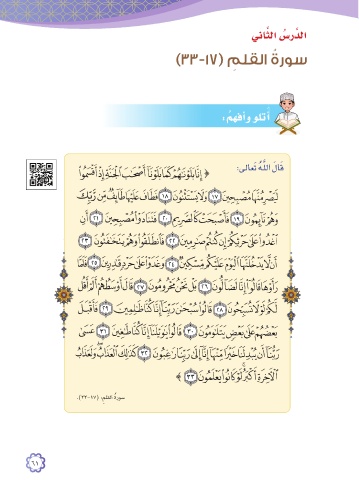 الدّرسُ الثّاني
سورةُ القلمِ (١٧-٣٣)
أَتلو وأفهمُ:
قَالَ اللَّهُ تَعالى:
﴿ إِنَّا بَلَوْنَٰهُمْ كَمَا بَلَوْنَآ أَصْحَٰبَ ٱلْجَنَّةِ إِذْ أَقْسَمُوا۟
لَيَصْرِمُنَّهَا مُصْبِحِينَ ١٧ وَلَا يَسْتَثْنُونَ ١٨ فَطَافَ عَلَيْهَا طَآئِفٌ مِّن رَّبِّكَ
وَهُمْ نَآئِمُونَ ١٩ فَأَصْبَحَتْ كَٱلصَّرِيمِ ٢٠ فَتَنَادَوْا۟ مُصْبِحِينَ ٢١ أَنِ
ٱغْدُوا۟ عَلَىٰ حَرْثِكُمْ إِن كُنتُمْ صَٰرِمِينَ ٢٢ فَٱنطَلَقُوا۟ وَهُمْ يَتَخَٰفَتُونَ ٢٣
أَن لَّا يَدْخُلَنَّهَا ٱلْيَوْمَ عَلَيْكُم مِّسْكِينٌ ٢٤ وَغَدَوْا۟ عَلَىٰ حَرْدٍ قَٰدِرِينَ ٢٥ فَلَمَّا
رَأَوْهَا قَالُوٓا۟ إِنَّا لَضَآلُّونَ ٢٦ بَلْ نَحْنُ مَحْرُومُونَ ٢٧ قَالَ أَوْسَطُهُمْ أَلَمْ أَقُل
لَّكُمْ لَوْلَا تُسَبِّحُونَ ٢٨ قَالُوا۟ سُبْحَٰنَ رَبِّنَآ إِنَّا كُنَّا ظَٰلِمِينَ ٢٩ فَأَقْبَلَ
بَعْضُهُمْ عَلَىٰ بَعْضٍ يَتَلَٰوَمُونَ ٣٠ قَالُوا۟ يَٰوَيْلَنَآ إِنَّا كُنَّا طَٰغِينَ ٣١ عَسَىٰ
رَبُّنَآ أَن يُبْدِلَنَا خَيْرًا مِّنْهَآ إِنَّآ إِلَىٰ رَبِّنَا رَٰغِبُونَ ٣٢ كَذَٰلِكَ ٱلْعَذَابُ وَلَعَذَابُ
ٱلْءَاخِرَةِ أَكْبَرُ لَوْ كَانُوا۟ يَعْلَمُونَ ٣٣ ﴾
سورةُ القلمِ: (١٧-٣٣).
٦١